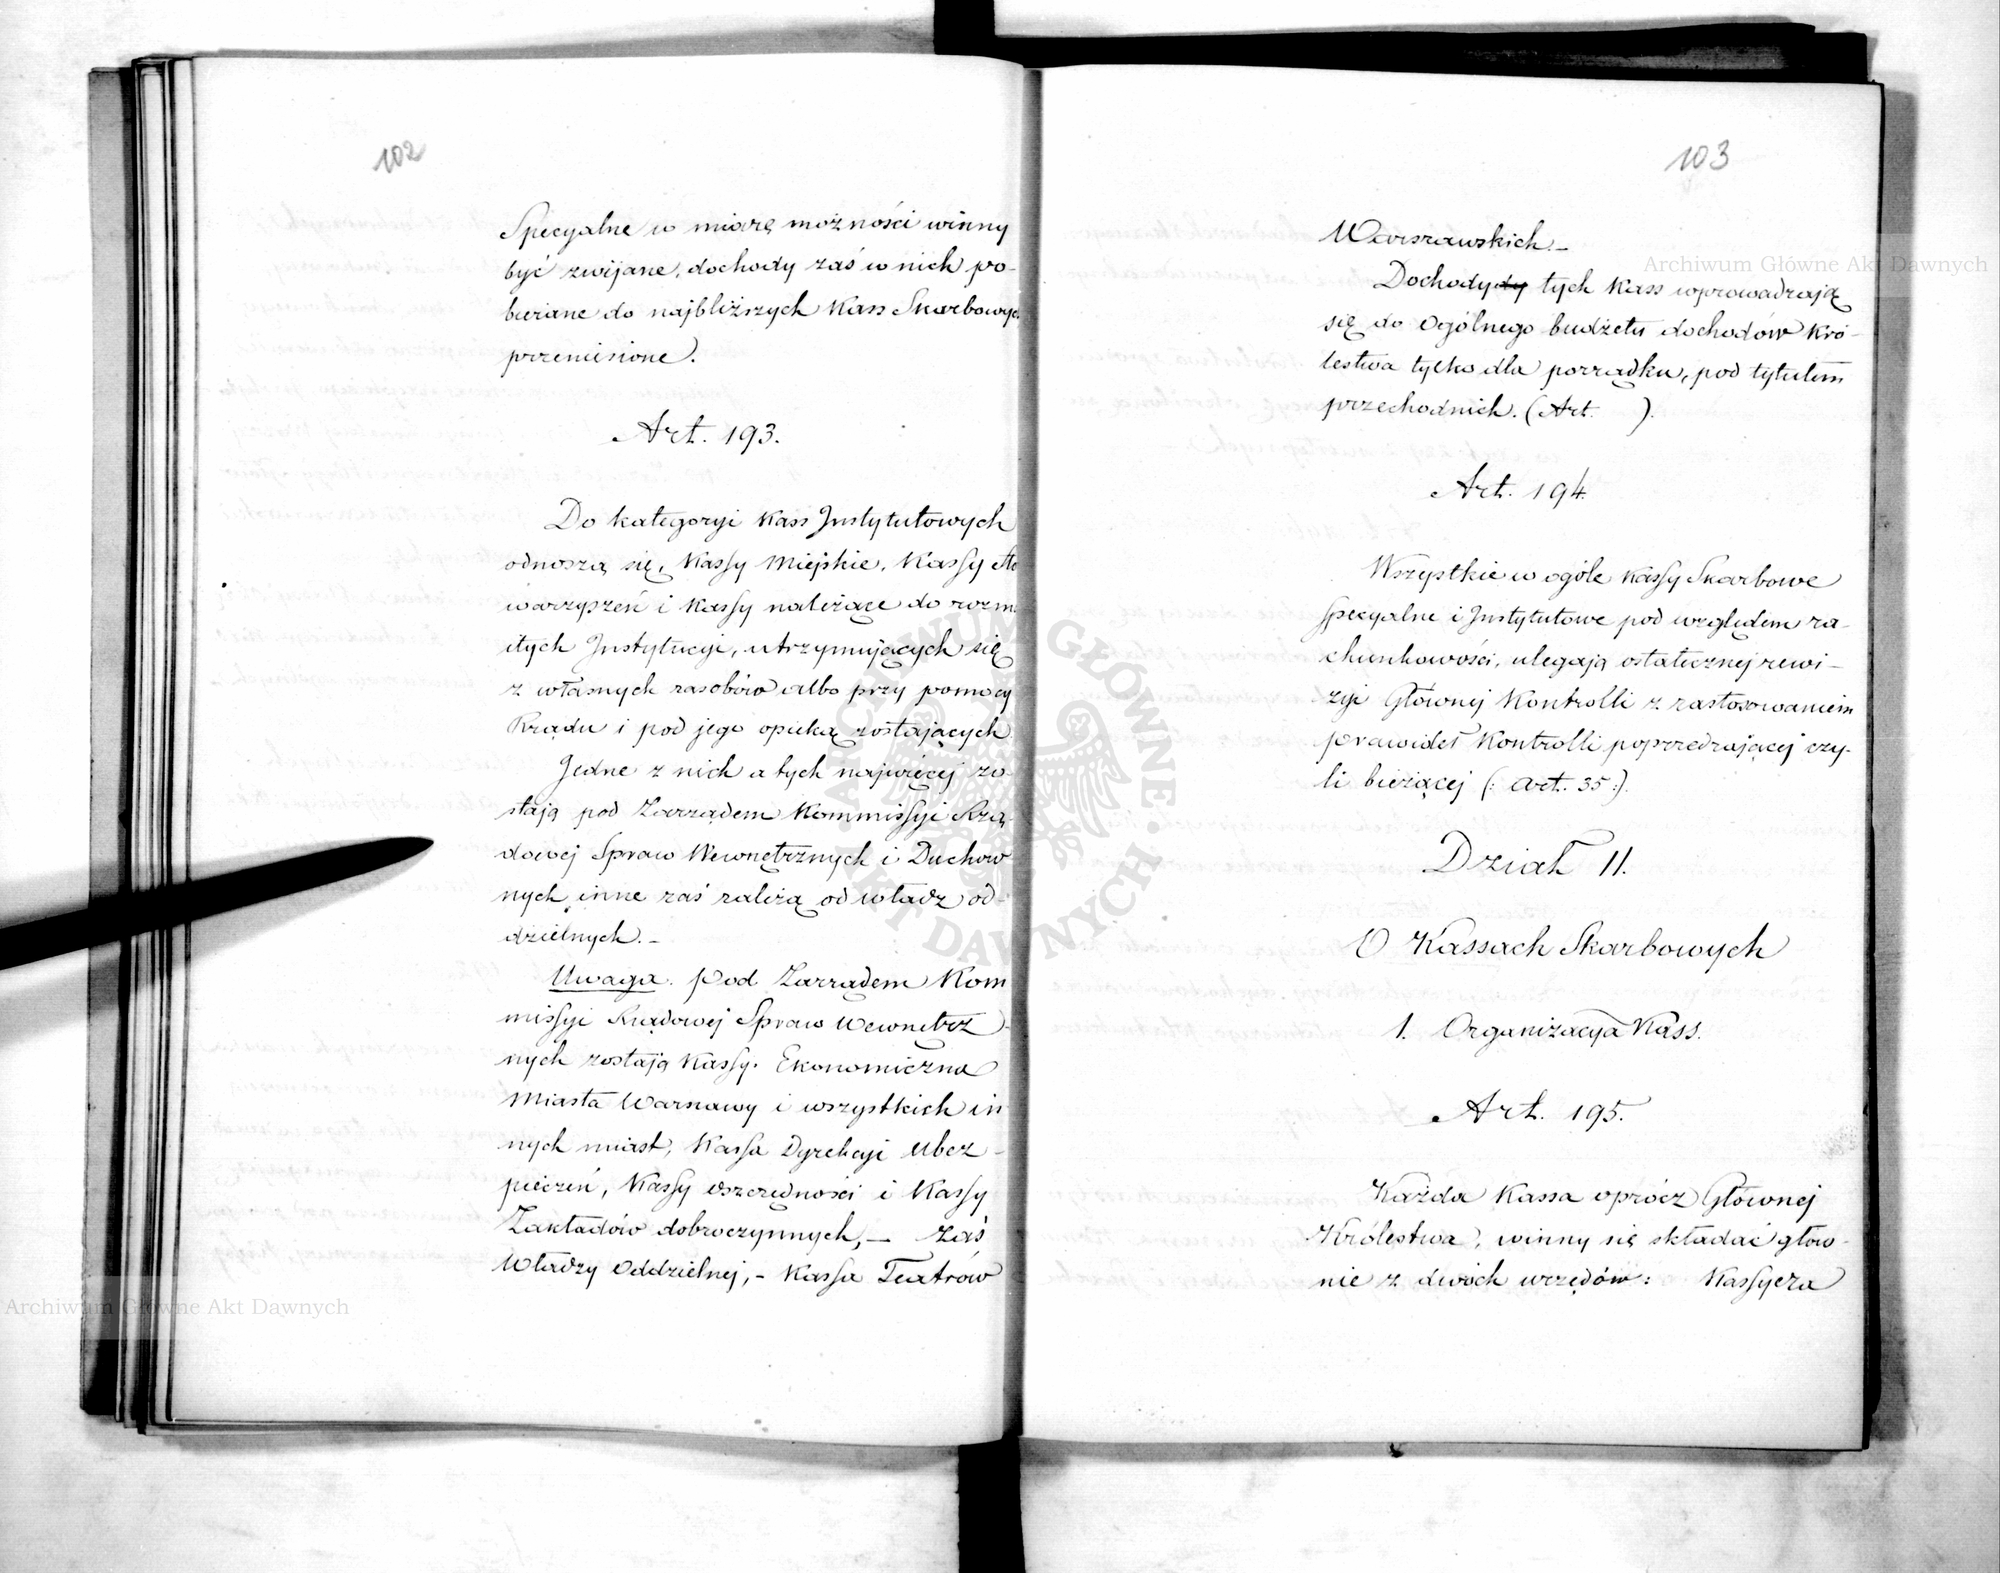 102
Specyalne w miarę możności winny
być zwijane, dochody zaś w nich po-
bierane do najbliższych Kass Skarbowych
przeniesione.
Art. 193.
Do kategoryi Kass Instytutowych
odnoszą się, Kassy Miejskie, Kassy Sto
warzyszeń i Kassy należące do rozma
itych Instytucyi, utrzymujących się
z własnych zasobów albo przy pomocy
Rządu i pod jego opieką zostających
Jedne z nich a tych najwięcej zo-
stają pod Zarządem Kommissyi Rzą
dowej Spraw Wewnętrznych i Duchow
nych inne zaś zależą od władz od-
dzielnych. –
Uwaga. Pod Zarządem Kom
missyi Rządowej Spraw Wewnętrz
nych zostają Kassy. Ekonomiczna
Miasta Warszawy i wszystkich in
nych miast, Kassa Dyrekcyi Ubez-
pieczeń, Kassy oszczędności i Kassy
Zakładów dobroczynnych, – zaś
Władzy Oddzielnej, – Kassa Teatrów
103
Warszawskich. –
Dochodydy tych Kass wprowadzają
się do Ogólnego budżetu dochodów Kró-
lestwa tylko dla porządku, pod tytułem
przechodnich. (Art. ).
Art. 194.
Wszystkie w ogóle Kassy Skarbowe
Specyalne i Instytutowe pod względem ra-
chunkowości, ulegają ostatecznej rewi-
zyi Głównej Kontrolli z zastosowaniem
prawideł Kontrolli poprzedzającej czy-
li bieżącej (: Art. 35 :).
Dział II.
O Kassach Skarbowych
1. Organizacya Kass.
Art. 195.
Każda Kassa oprócz Głównej
Królestwa, winny się składać głów-
nie z dwóch urzędów: Kassyera
Archiwum Główne Akt Dawnych
Archiwum Główne Akt Dawnych
ARCHIWUM GŁÓWNE AKT DAWNYCH